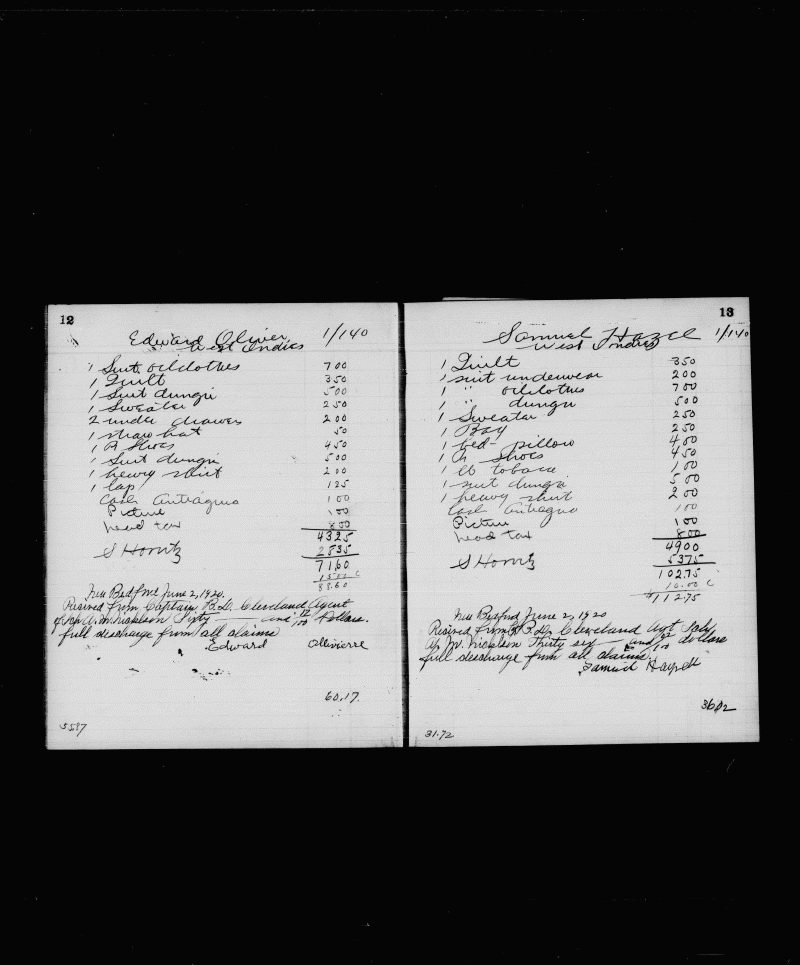 12
Edward Oliver 1/140
West Indies
1 Suit oilclothes 700
1 Quilt 350
1 Suit dungri 500
1 Sweater 250
2 under drawers 200
1 straw hat 50
1 P Shoes 450
1 Suit dungri 500
1 heavy shirt 200
1 cap 125
Cash Antiaguas 100
Picture 100
head tax 800
4325
S Horvitz 2835
7160
1500 c
88.60
New Bedford June 2, 1920.
Recived from Captain B.D. Cleveland Agent
of Sch A. M. Nicholson Sixty and 17/100 Dollars.
full discharge from all claims
Edward Ollivierre
60.17.
13
Samuel Hazel 1/140
West Indies
1 Quilt 350
1 suit underwear 200
1 " oilclothes 700
1 " dungri 500
1 Sweater 250
1 Bag 250
1 bed - pillow 400
1 P. shoes 450
1 lb tobacco 100
1 suit dungri 500
1 heavy shirt 200
Cash Antiagua 100
Picture 100
head tax 800
4900
S Horvitz 5375
102.75
10.00 c
$112.75
New Bedford June 2, 1920
Recived from B.D. Cleveland Agt Sch
A. M. Nicholson Thirty six and 02/100 dollars
full discharge from all claims.
Samuel
36.02
31.72